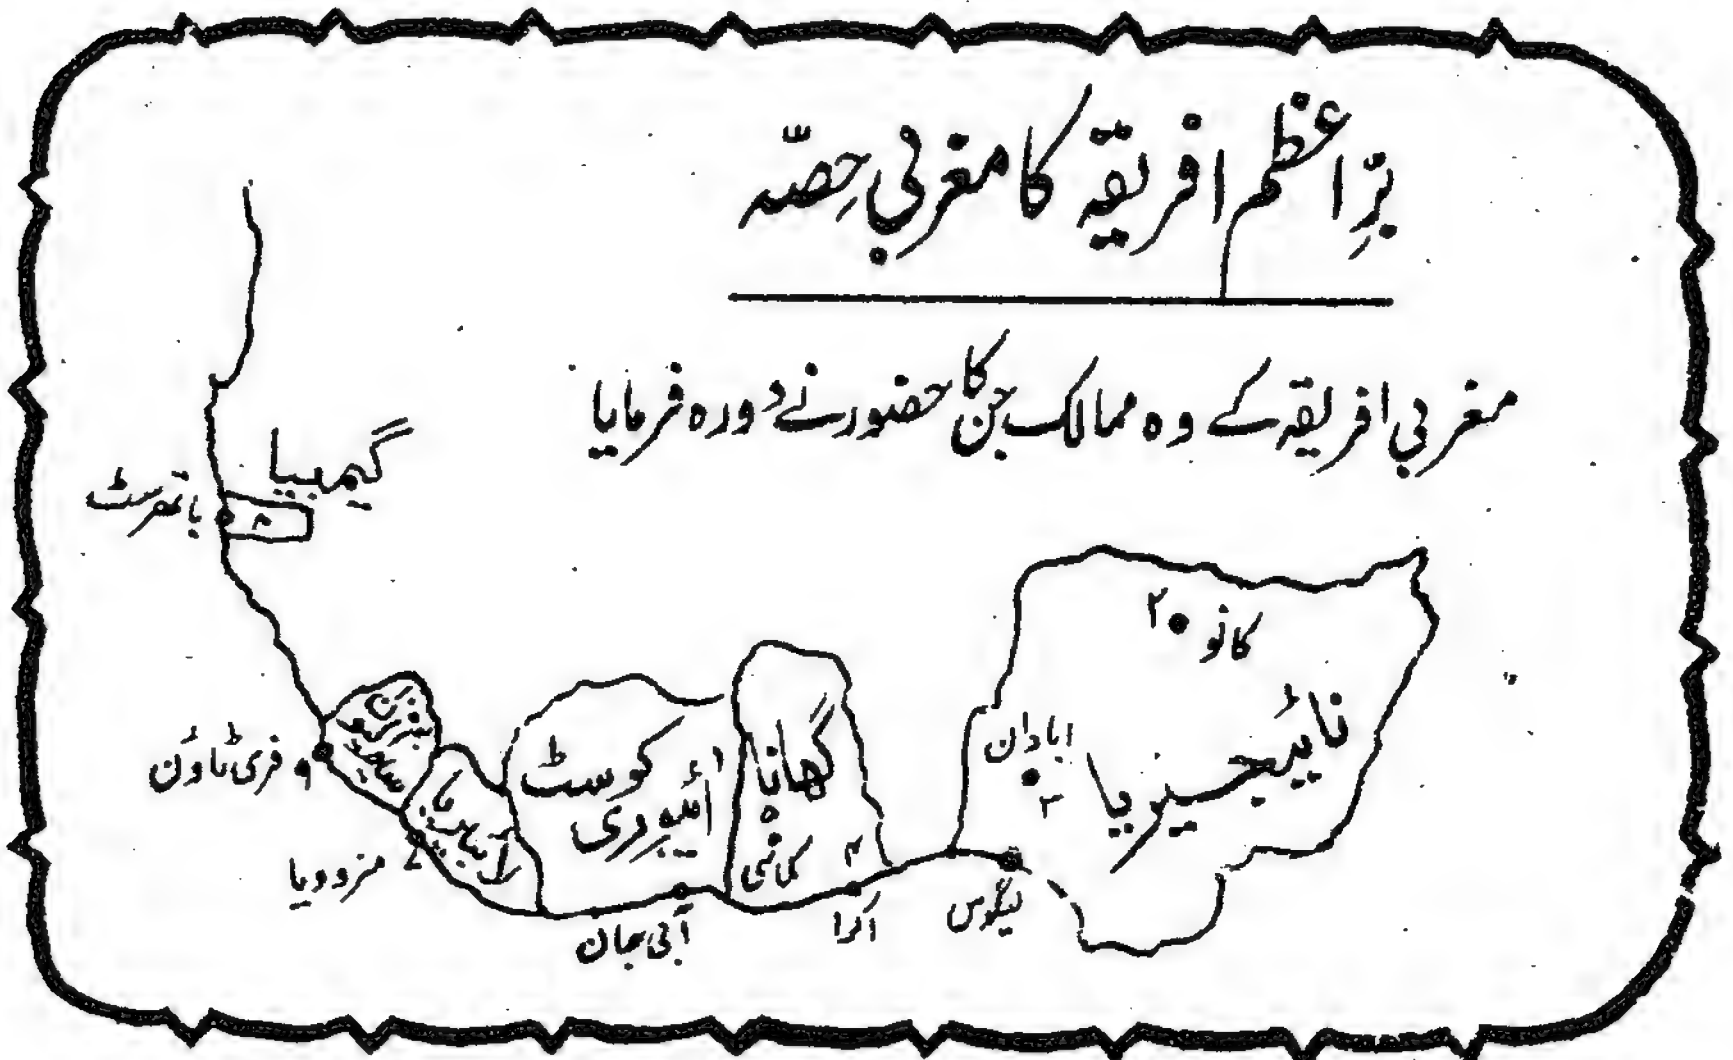 برِّاعظم افریقہ کا مغربی حِصّہ
مغربی افریقہ کے وہ ممالک جن کا حضور نے دورہ فرمایا
گیمبیا
باتھرسٹ
۸
کانو
۲
نائیجیریا
ابادان
۳
لیگوس
گھانا
کماسی
۵
۴
اکرا
آئیوری
کوسٹ
آبی جان
لائبیریا
منروویا
فری ٹاؤن
۹